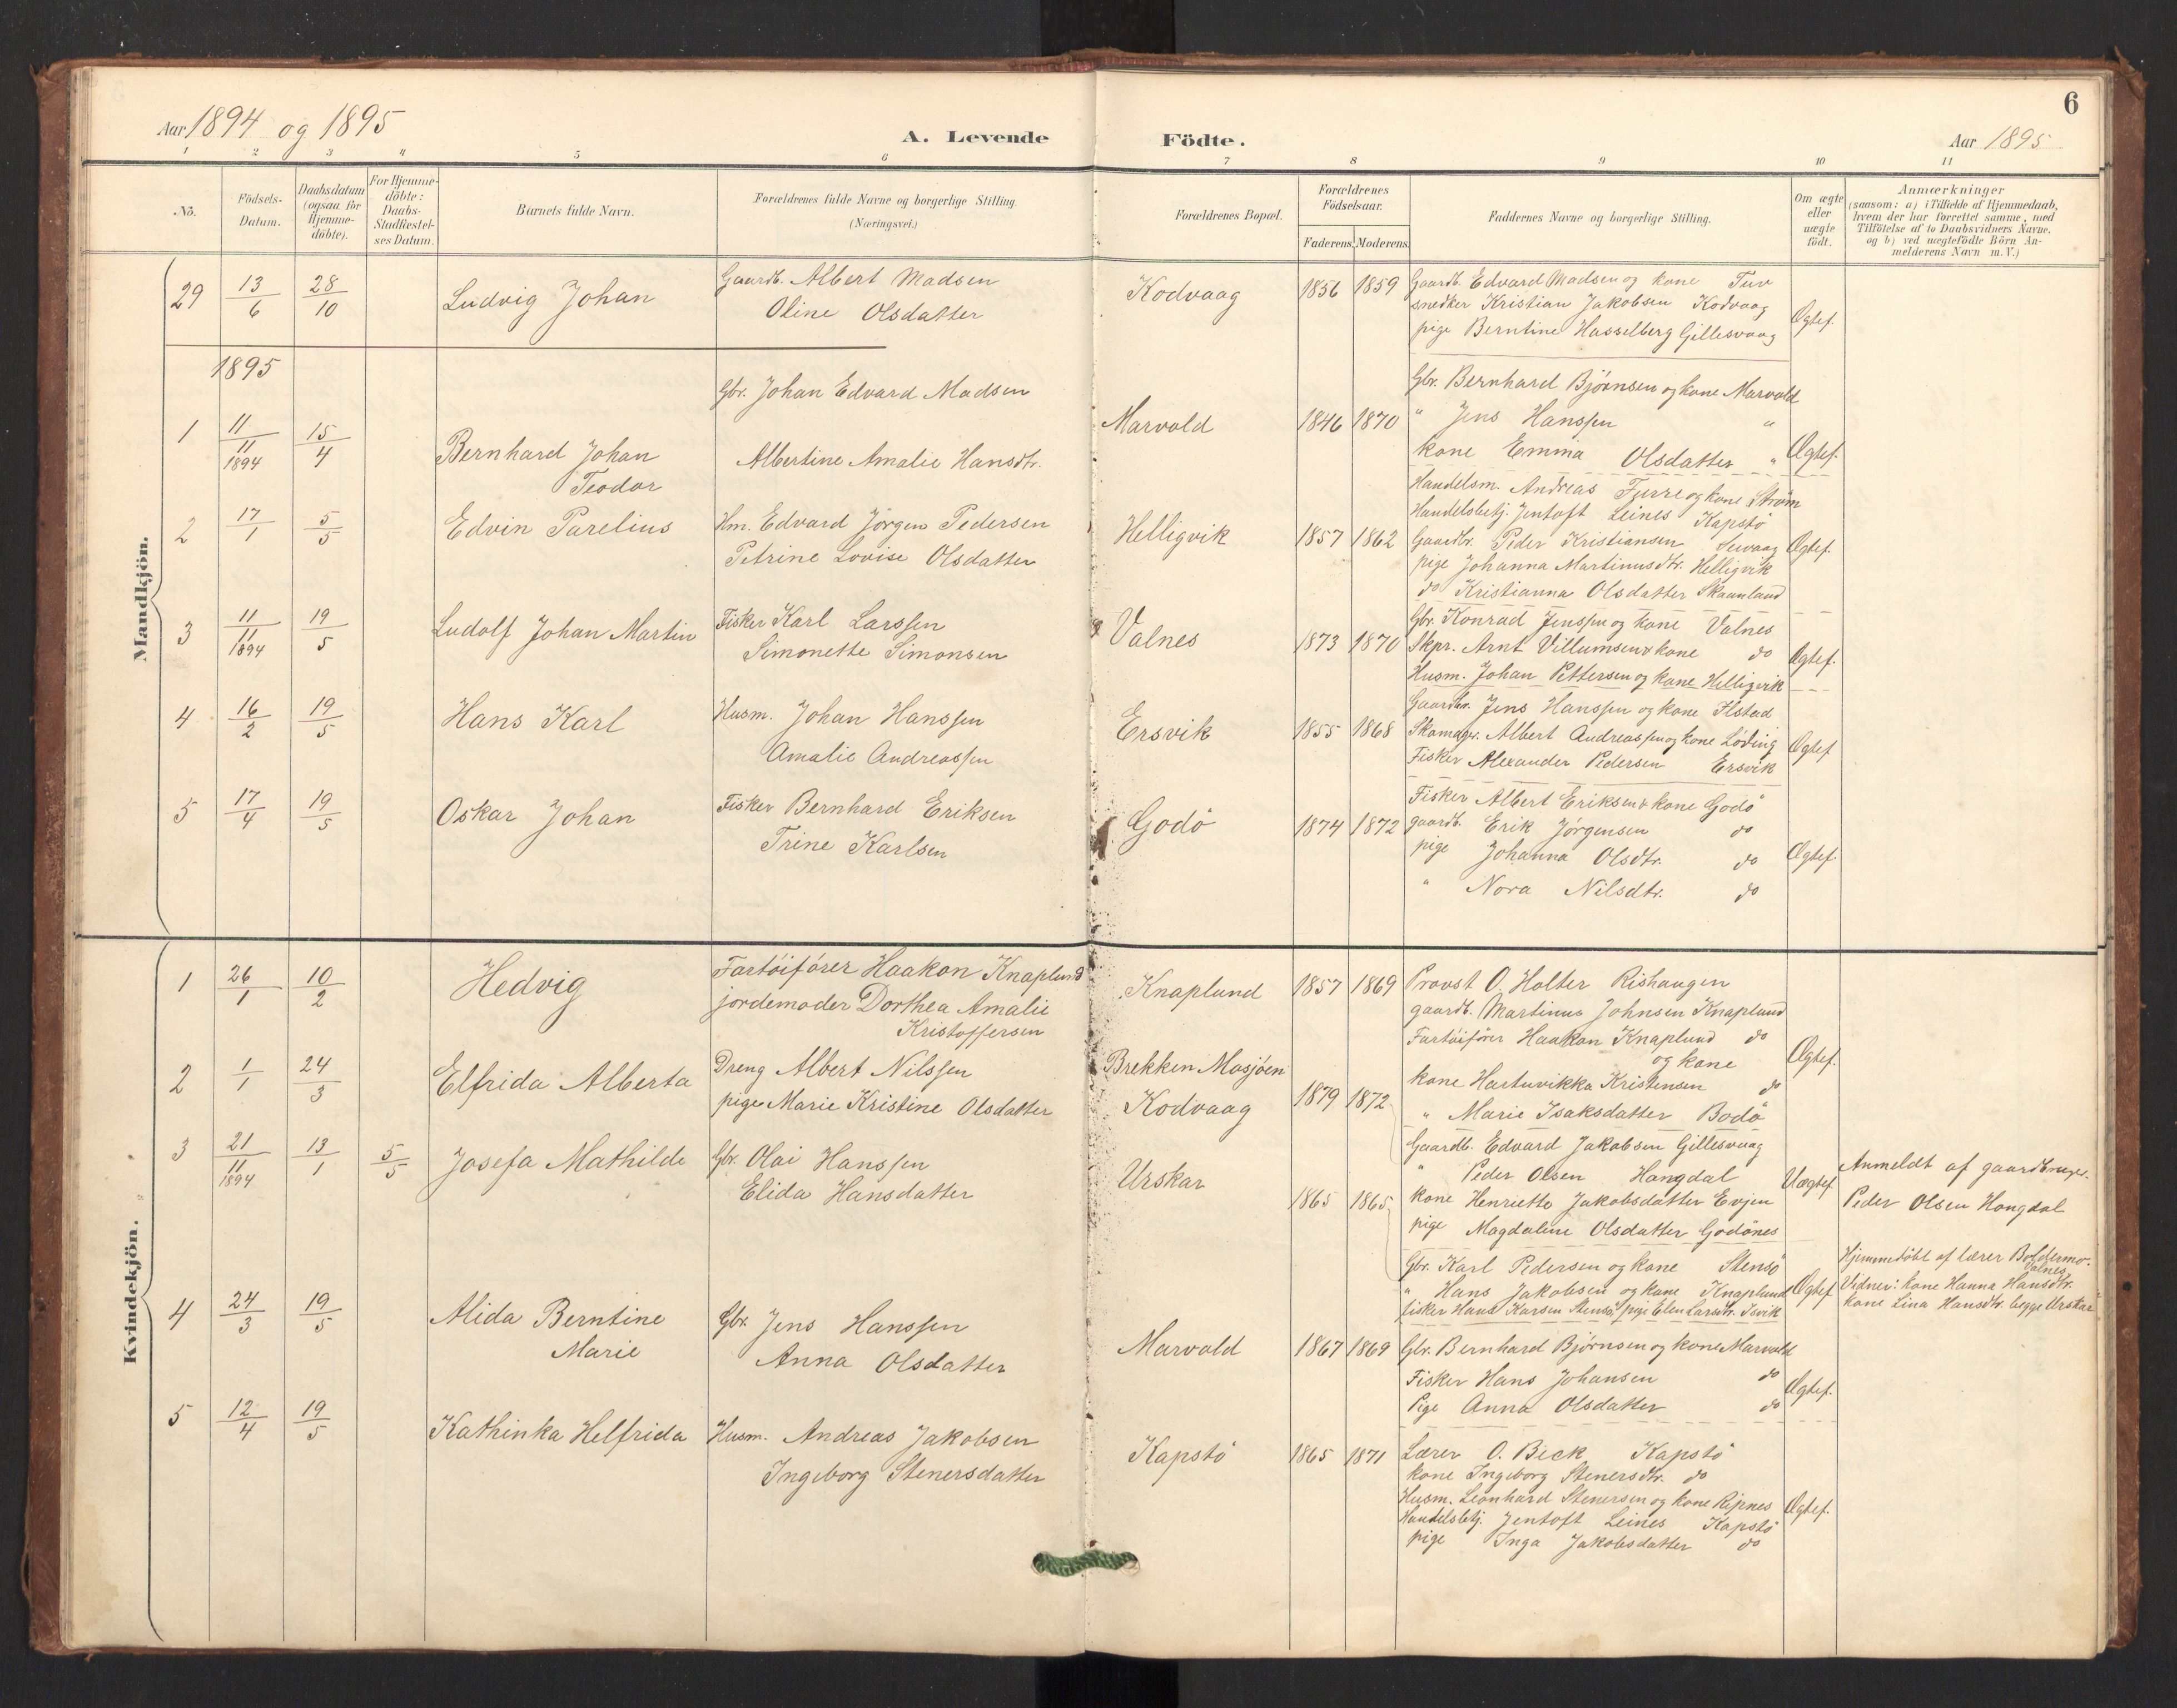 6
Aar 1894 og 1895
A. Levende Födte.
Aar 1895
1 2 3 4 5 6 7 8 9 10 11
No.
Födsels-Datum.
Daabsdatum (ogsaa for Hjemme-döbte).
For Hjemme-döbte: Daabs-Stadfæstel-ses Datum.
Barnets fulde Navn.
Forældrenes fulde Navne og borgerlige Stilling. (Næringsvei.)
Forældrenes Bopæl.
Forældrenes Födselsaar.
Faderens. Moderens.
Faddernes Navne og borgerlige Stilling.
Om ægte eller uægte födt.
Anmærkninger
(saasom: a) i Tilfælde af Hjemmedaab,
hvem der har forrettet samme, med
Tilföielse af to Daabsvidners Navne.
og b) ved uægtefödte Börn An-
melderens Navn m.V.)
Mandkjön.
29 13/6 28/10 Ludvig Johan
Gaardb. Albert Madsen
Oline Olsdatter
Kodvaag 1856 1859
Gaardb. Edvard Madsen og kone Tuv
snedker Kristian Jakobsen Kodvaag
pige Berntine Hasselberg Gillesvaag
Ægtef.
1895
1 11/11 1894 15/4 Bernhard Johan
Teodor
Gbr. Johan Edvard Madsen
Albertine Amalie Hansdtr.
Marvold 1846 1870
Gbr. Bernhard Bjørnsen og kone Marvold
" Jens Hanssen "
kone Emma Olsdatter "
Ægtef.
2 17/1 5/5 Edvin Parelius
Hm. Edvard Jørgen Pedersen
Petrine Lovise Olsdatter
Helligvik 1857 1862
Handelsm. Andreas Furre og kone Strøm
Handelsbetj. Jentoft Leines Kapstö
Gaardbr. Peder Kristiansen
pige Johanna Martinusdtr. Helligvik
do Kristianna Olsdatter Skaanland
Ægtef.
3 11/11 1894 19/5 Ludolf Johan Martin
Fisker Karl Larssen
Simonette Simonsen
Valnes 1873 1870
Gbr. Konrad Jenssen og kone Valnes
Skpr. Arnt Villumsen & kone do
Husm. Johan Pettersen og kone Helligvik
Ægtef.
4 16/2 19/5 Hans Karl
Husm. Johan Hanssen
Amalie Andreassen
Ersvik 1855 1868
Gaardbr. Jens Hanssen og kone Ilstad
Skomagr. Albert Andreassen og kone Löding
Fisker Alexander Pedersen Ersvik
Ægtef
5 17/4 19/5 Oskar Johan
Fisker Bernhard Eriksen
Trine Karlsen
Godö 1874 1872
Fisker Albert Eriksen & kone Godö
gaardb. Erik Jørgensen do
pige Johanna Olsdtr. do
" Nora Nilsdtr. do
Ægtef.
Kvindekjön.
1 26/1 10/2 Hedvig
Fartöifører Haakon Knaplund
jordemoder Dorthea Amalie
Kristoffersen
Knaplund 1857 1869
Provst O. Holter Rishaugen
gaardb. Martinus Johnsen Knaplund
Fartöifører Haakon Knaplund do
og kone
kone Hartvikka Kristensen do
" Marie Isaksdatter Bodö
Ægtef.
2 1/1 24/3 Elfrida Alberta
Dreng Albert Nilssen
pige Marie Kristine Olsdatter
Brekken Mosjöen
Kodvaag 1879 1872
Gaardb. Edvard Jakobsen Gillesvaag
" Peder Olsen Hangdal
kone Henriette Jakobsdatter Evjen
pige Magdalene Olsdatter Godönes
Uægtef
Anmeldt af gaardbruger.
Peder Olsen Hongdal
3 21/11 1894 13/1 5/5 Josefa Mathilde
Gbr. Olai Hanssen
Elida Hansdatter
Urskar 1865 1865
Gbr. Karl Pedersen og kone Stensö
" Hans Jakobsen og kone Knaplund
fisker Hans Karsen Stensö pige Elen Larsdtr. Isvik
Ægtef
Hjemmedöbt af lærer Boldermo.
Valnes
Vidner: kone Hanna Hansdtr.
kone Lina Hansdtr. begge Urskar
4 24/3 19/5 Alida Berntine
Marie
Gbr. Jens Hanssen
Anna Olsdatter
Marvold 1867 1869
Gbr. Bernhard Bjørnsen og kone Marvold
Fisker Hans Johansen do
Pige Anna Olsdatter do
Ægtef.
5 12/4 19/5 Kathinka Helfrida
Husm. Andreas Jakobsen
Ingeborg Stenersdatter
Kapstö 1865 1871
Lærer O. Bick Kapstö
kone Ingeborg Stenersdtr. do
Husm. Leonhard Stenersen og kone Ripnes
Handelsbetj. Jentoft Leines Kapstö
pige Inga Jakobsdatter do
Ægtef.